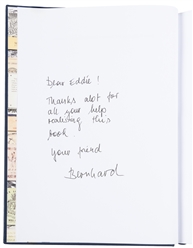 Dear Eddie!
Thanks alot for
all your help
realising this
book
Your friend
Bernhard